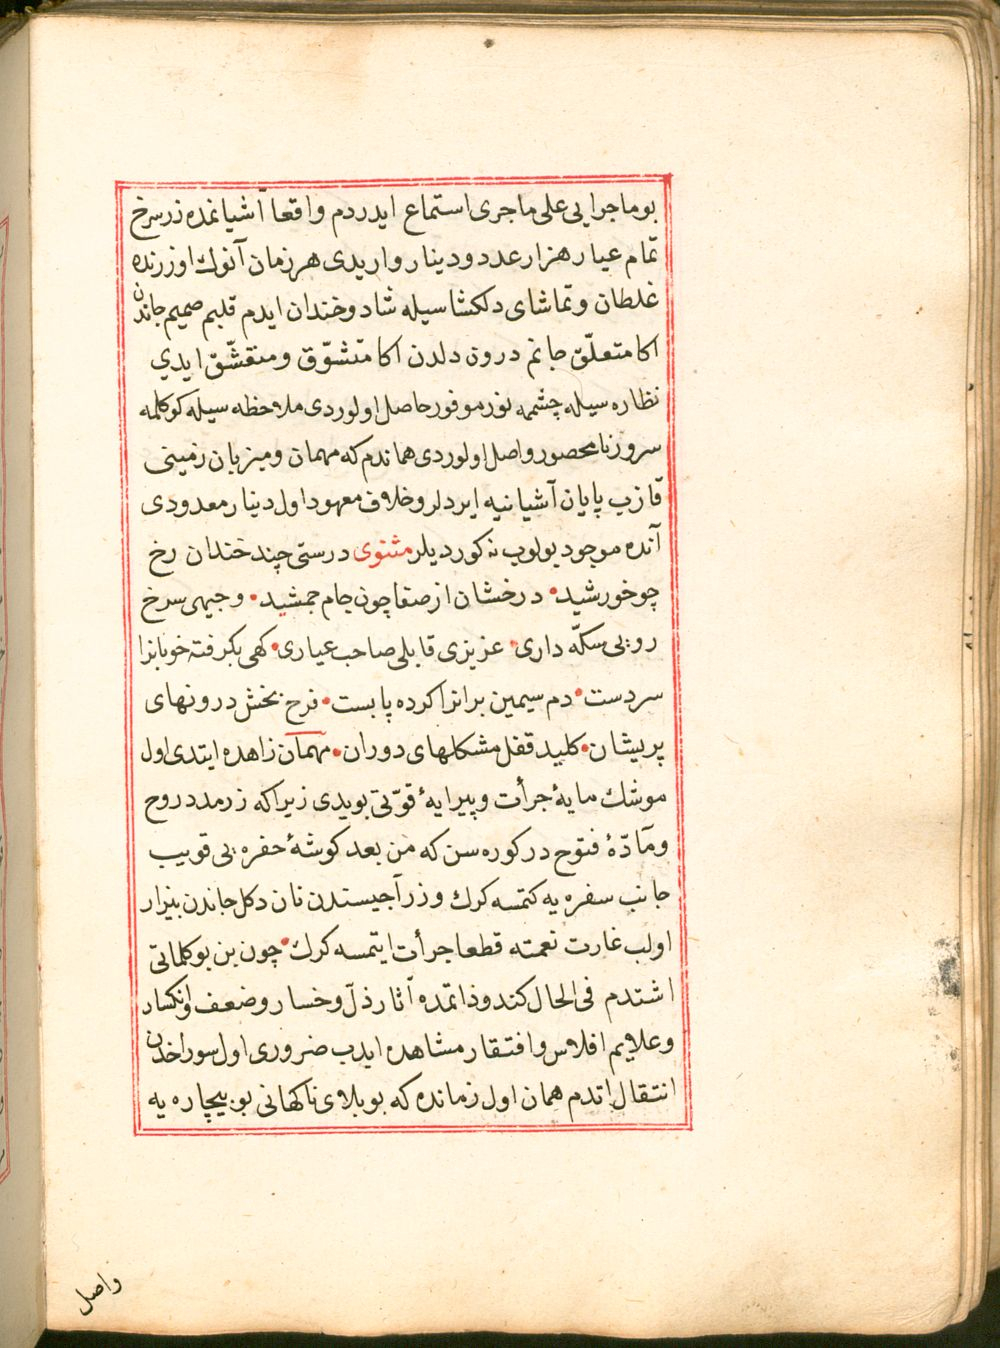 بو ماجرايى على ماجرى استماع ايدردم واقعا آشيانمده زر سرخ
تمام عيار هزار عدد دينار وار يدى هر زمان آنوك اوزرنده
غلطان و تماشاى دلكشاسيله شاد و خندان ايدم قلبم صميم جاندن
اكا متعلّق جانم درون دلدن اكا متشوّق و متعشّق ايدي
نظاره سيله چشممه نور موفور حاصل اولوردى ملاحظه سيله كوكلمه
سرور نامحصور واصل اولوردى هماندم كه مهمان و ميزبان زمينى
قازب پايان آشيانيه ايردلر و خلاف معهود اول دينار معدودى
آنده موجود بولوب نه كورديلر مثنوى درستى چند خندان رخ
چو خورشيد • درخشان از صفا چون جام جمشيد • وجيهى سرخ
رويى سكّه دارى • عزيزى قابلى صاحب عيارى • كهى بكرفته خوبانرا
سر دست • دم سيمين برانرا كرده پا بست • فرح بخش درونهاى
پريشان • كليد قفل مشكلهاى دوران • مهمان زاهده ايتدى اول
موشك مايۀ جرأت و پيرايۀ قوّتى بويدى زيرا كه زر مدد روح
و مآدّۀ فتوح در كوره سن كه من بعد كوشۀ حفره يى قويب
جانب سفره يه كتمسه كرك و زر آجيسندن نان دكل جاندن بيزار
اولب غارت نعمته قطعا جرأت ايتمسه كرك • چون بن بو كلماتى
اشتدم فى الحال كندو ذاتمده آثار ذلّ و خسار و ضعف و انكسار
و علايم افلاس و افتقار مشاهده ايدب ضرورى اول سوراخدن
انتقال اتدم همان اول زمانده كه بو بلاى ناكهانى بو بيچاره يه
واصل